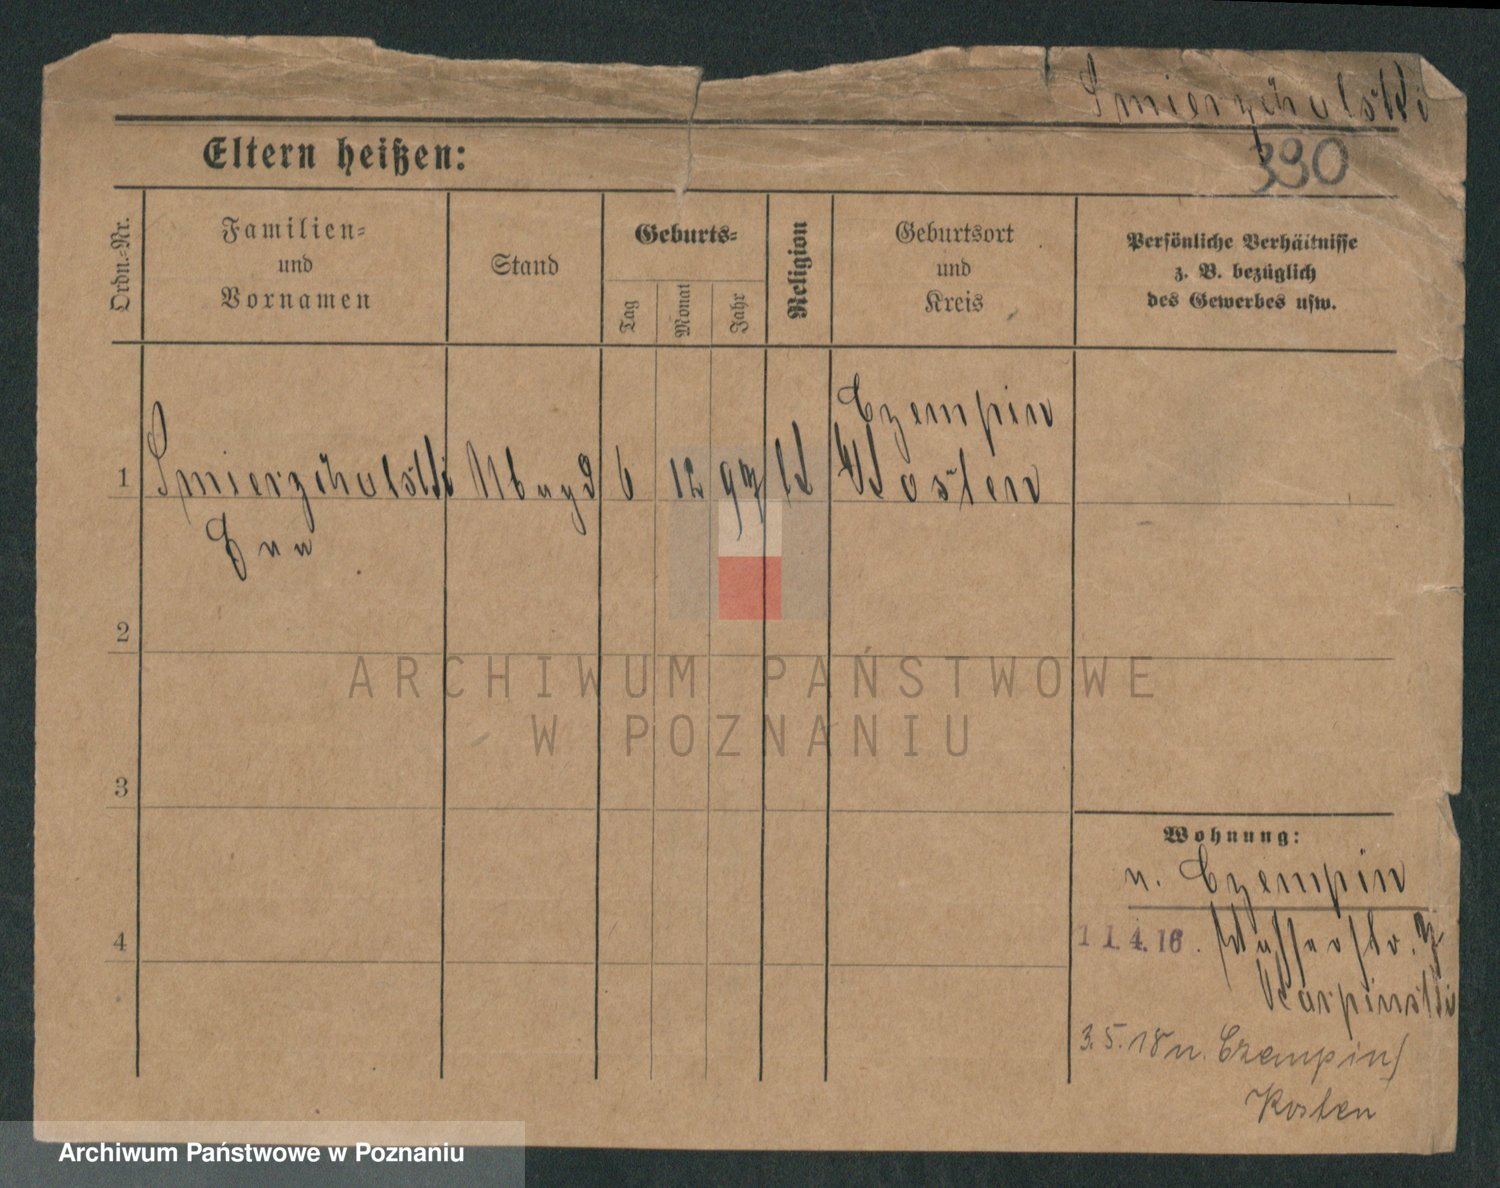 Smierzchalski
390
Eltern heißen:
Ordn.-Nr.
Familien-
und
Vornamen
Stand
Geburts-
Tag
Monat
Jahr
Religion
Geburtsort
und
Kreis
Persönliche Verhältnisse
z. B. bezüglich
des Gewerbes usw.
Czempin
1 Smierzchalski Magd 6 12 97 k Kosten
2
3
4
Wohnung:
n. Czempin
11.4.16.
Karpinski
3.5.18 n. Czempin/
Kosten
ARCHIWUM PAŃSTWOWE
W POZNANIU
Archiwum Państwowe w Poznaniu